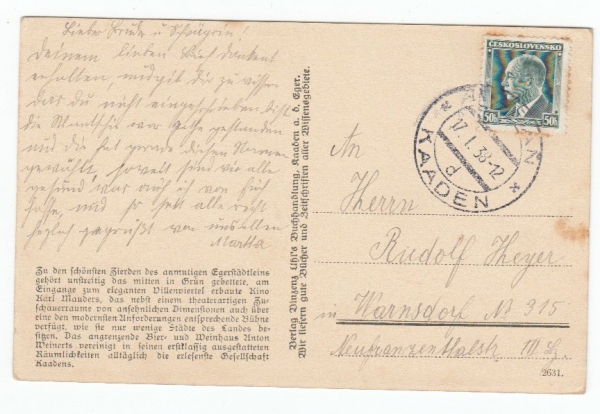 Lieber Bruder u Schwägerin!
Deinen lieben Brief dankend
erhalten, will dir zu wissen
das du nicht eingeschrieben bist
die war gestanden
und die hat gerade diesen Namen
gewählt, soweit sind wir alle
gesund was auch ich von Euch
hoffe, und so seit alle recht
herzlich gegrüßt von uns allen
Martha
Zu den schönsten Zierden des anmutigen Egerstädtleins
gehört unstreitig das mitten in Grün gebettete, am
Eingange zum eleganten Villenviertel erbaute Kino
Karl Mauders, das nebst einem theaterartigen Zu-
schauerraume von ansehnlichen Dimensionen auch über
eine den modernsten Anforderungen entsprechende Bühne
verfügt, wie sie nur wenige Städte des Landes be-
sitzen. Das angrenzende Bier- und Weinhaus Anton
Weinerts vereinigt in seinen erstklassig ausgestatteten
Räumlichkeiten alltäglich die erlesenste Gesellschaft
Kaadens.
Verlag Vinzenz Uhl's Buchhandlung, Kaaden a. d. Eger.
Wir liefern gute Bücher und Zeitschriften aller Wissensgebiete.
ČESKOSLOVENSKO
50h 50h
KADAŇ
17.I.38-12
d
KAADEN
An
Herrn
Rudolf Heyer
in Warnsdorf № 315
Neufranzenthalstr. III B.
2631.